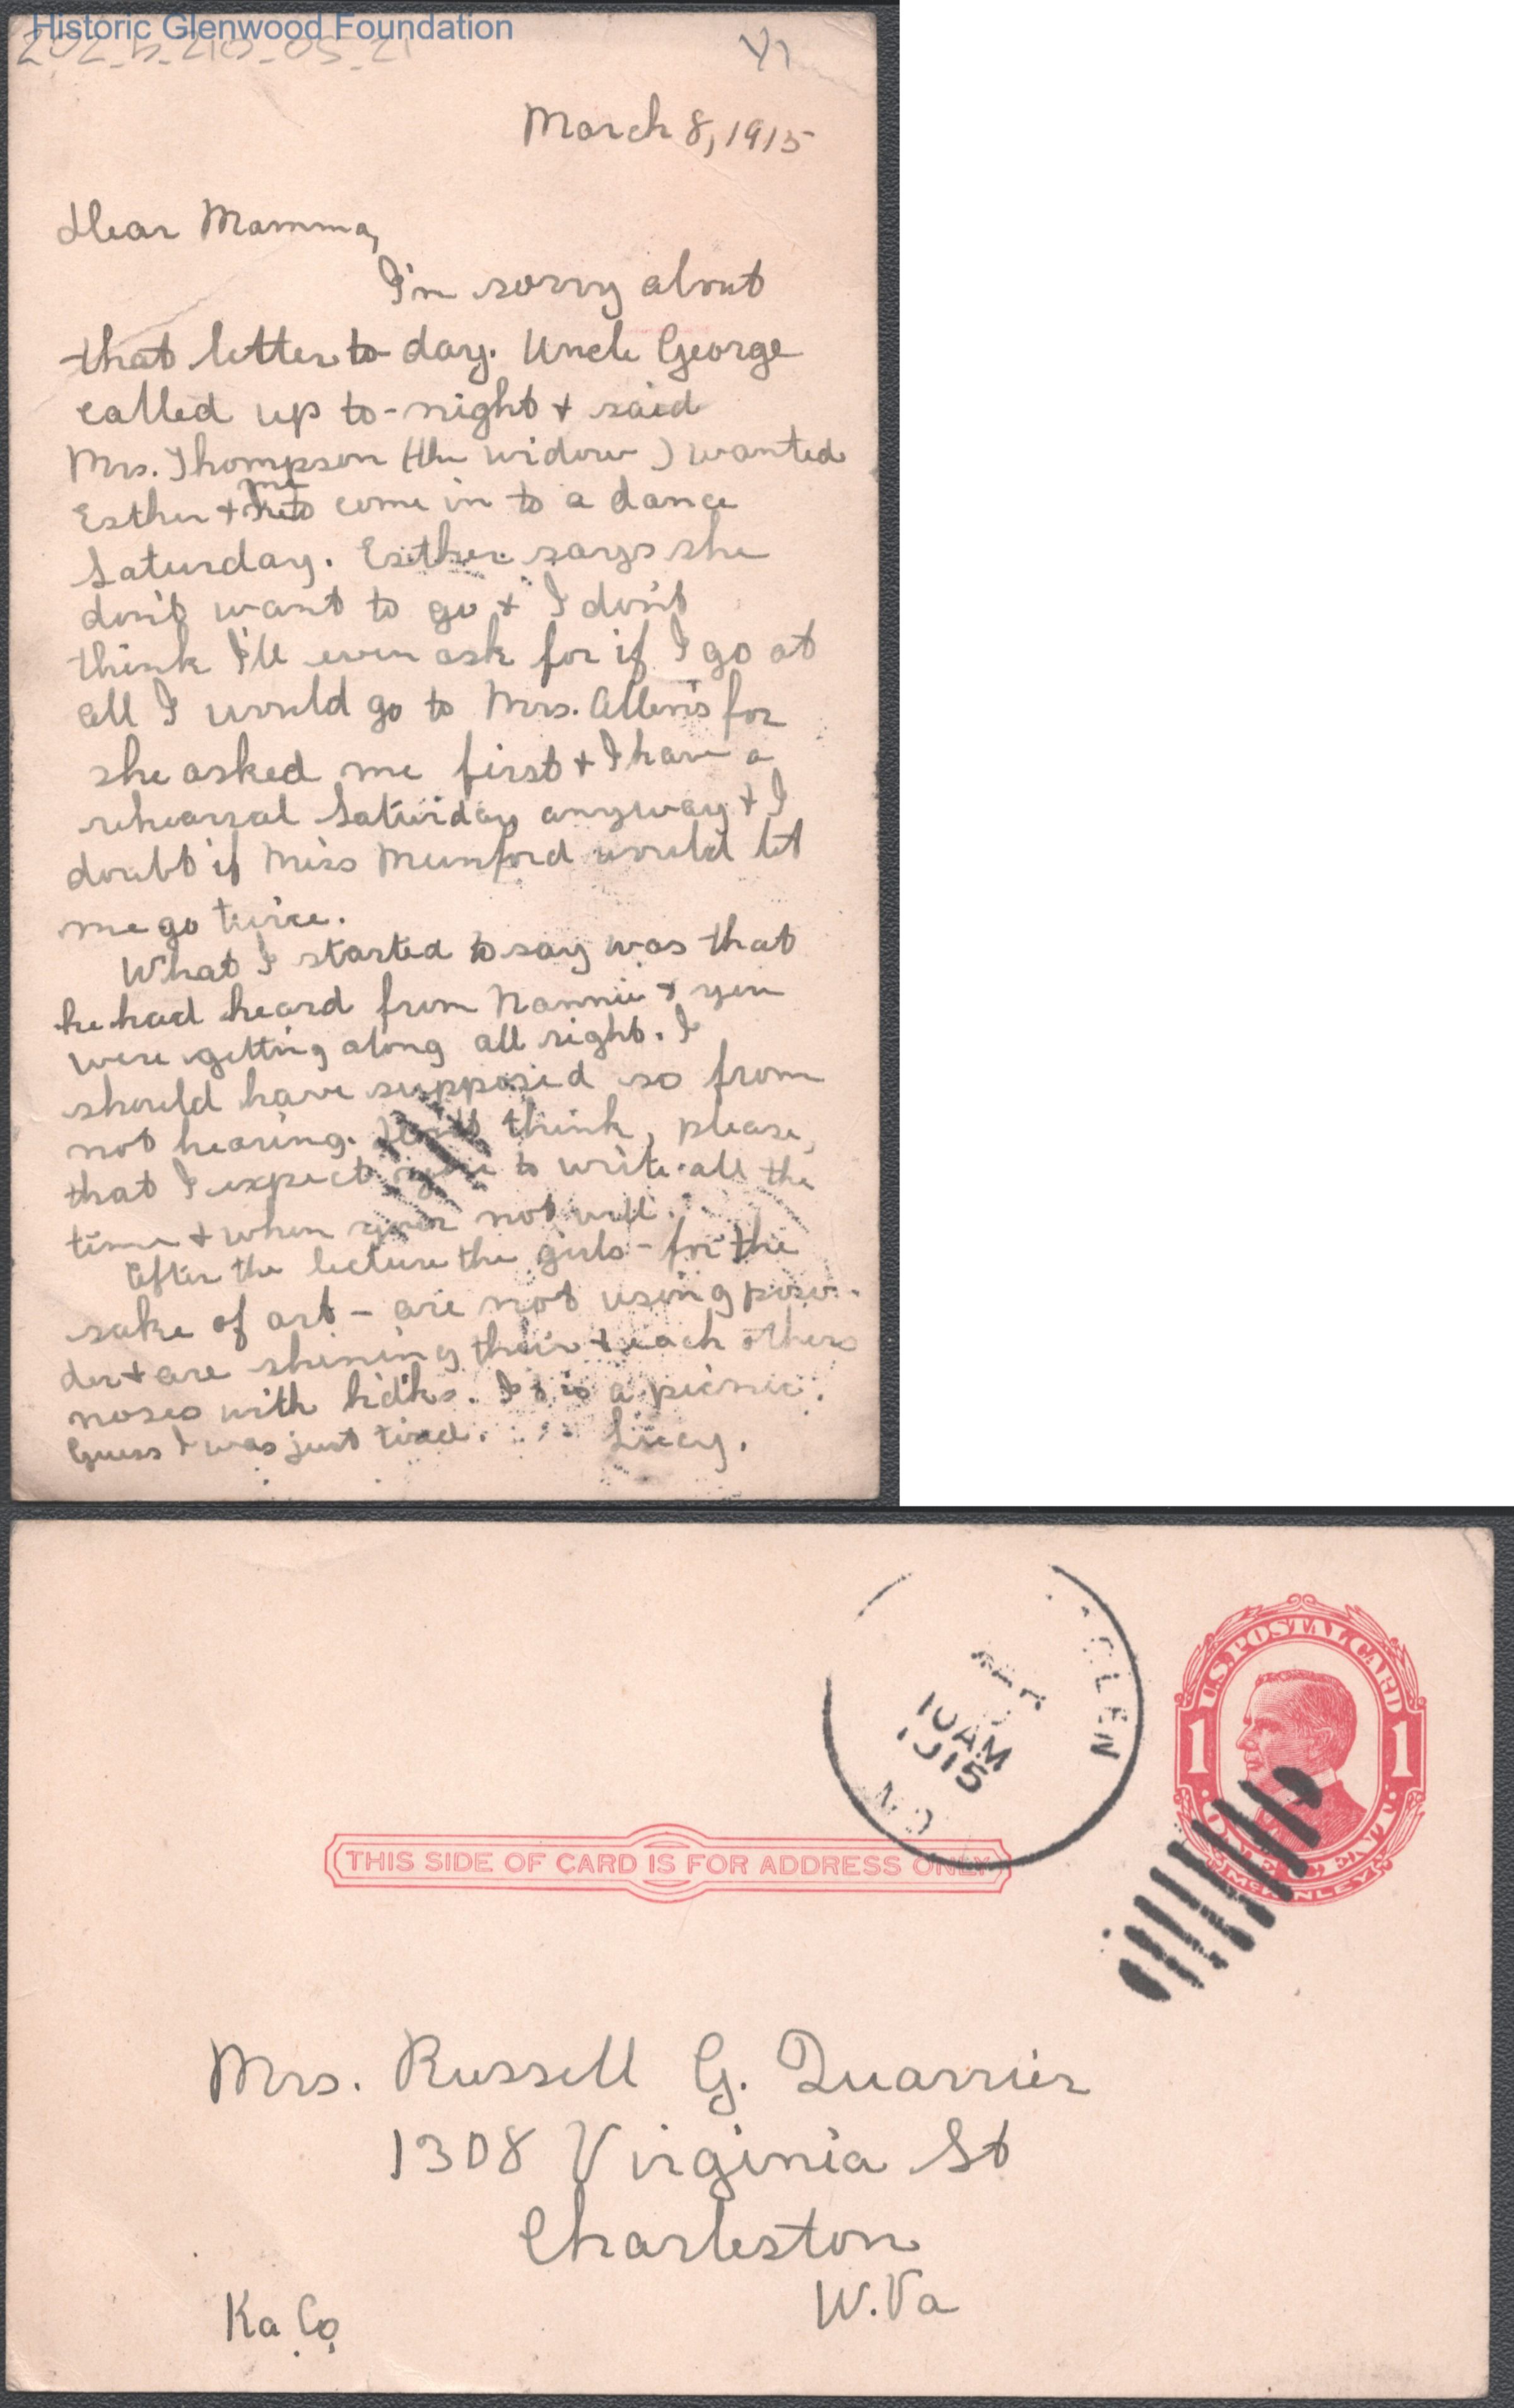 Historic Glenwood Foundation
202_b_210_05_21
March 8, 1915
Dear Mamma,
I'm sorry about
that letter to-day. Uncle George
called up to-night + said
Mrs. Thompson (the widow) wanted
Esther + me to come in to a dance
Saturday. Esther says she
don't want to go + I don't
think I'll even ask for if I go at
all I would go to Mrs. Allen's for
she asked me first + I have a
rehearsal Saturday anyway + I
doubt if Miss Munford would let
me go twice.
What I started to say was that
he had heard from Nannie + you
were getting along all right. I
should have supposed so from
not hearing. Don't think, please,
that I expect you to write all the
time + when your not well.
After the lecture the girls - for the
sake of art - are not using pow-
der + are shining their + each others
noses with hdk's. It is a picnic.
Guess I was just tired. Lucy.
GLEN
10 AM
1915
MD
U.S. POSTAL CARD
1 1
ONE CENT
McKINLEY
THIS SIDE OF CARD IS FOR ADDRESS ONLY
Mrs. Russell G. Quarrier
1308 Virginia St
Charleston
W. Va
Ka Co.